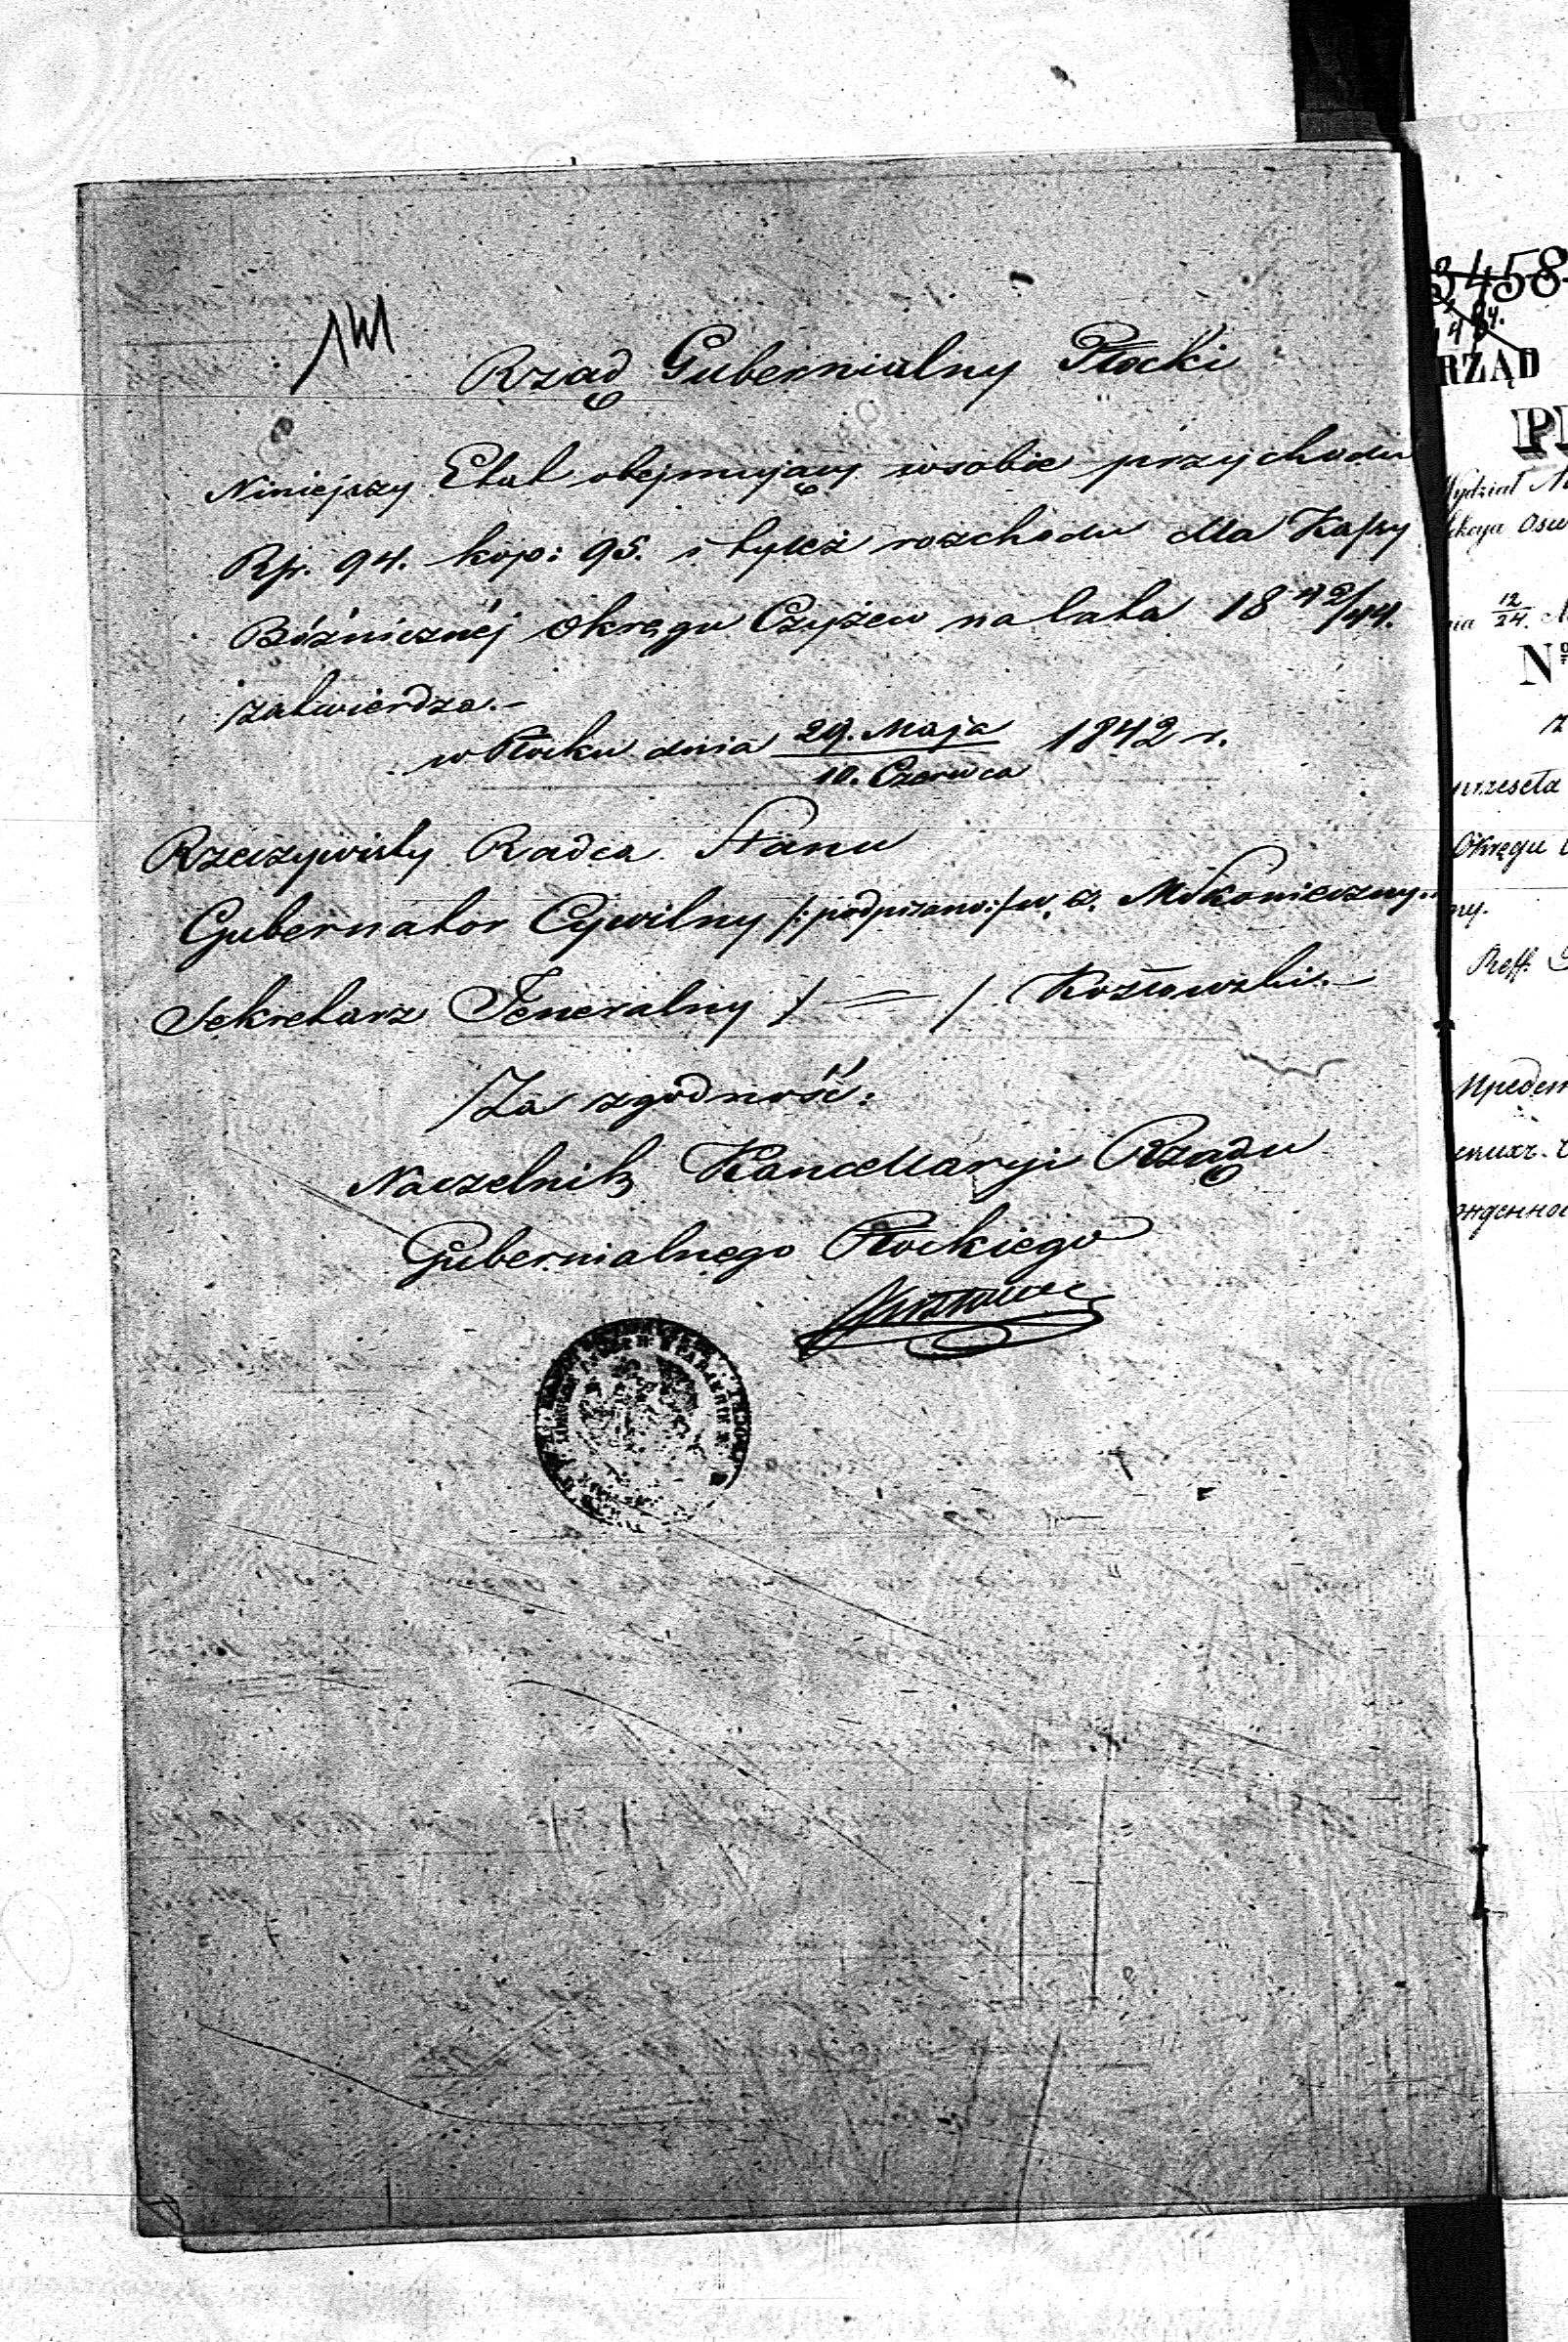 Rząd Gubernialny Płocki
Niniejszy Etat obejmujący wsobie przychodu
Rs. 94. kop: 95. i tyleż rozchodu dla Kassy
Bóżnicznéj Okręgu Czyżew na lata 18 42/44.
zatwierdza.-
w Płocku dnia 29. Maja / 10. Czerwca 1842 r.
Rzeczywisty Radca Stanu
Gubernator Cywilny /: podpisano :/ w. z.
Sekretarz Generalny / = / Kozłowski.-
Za zgodność:
Naczelnik Kancellaryi Rządu
Gubernialnego Płockiego
3458
RZĄD
Wydział
12/24.
Nº
przeseła
Okręgu